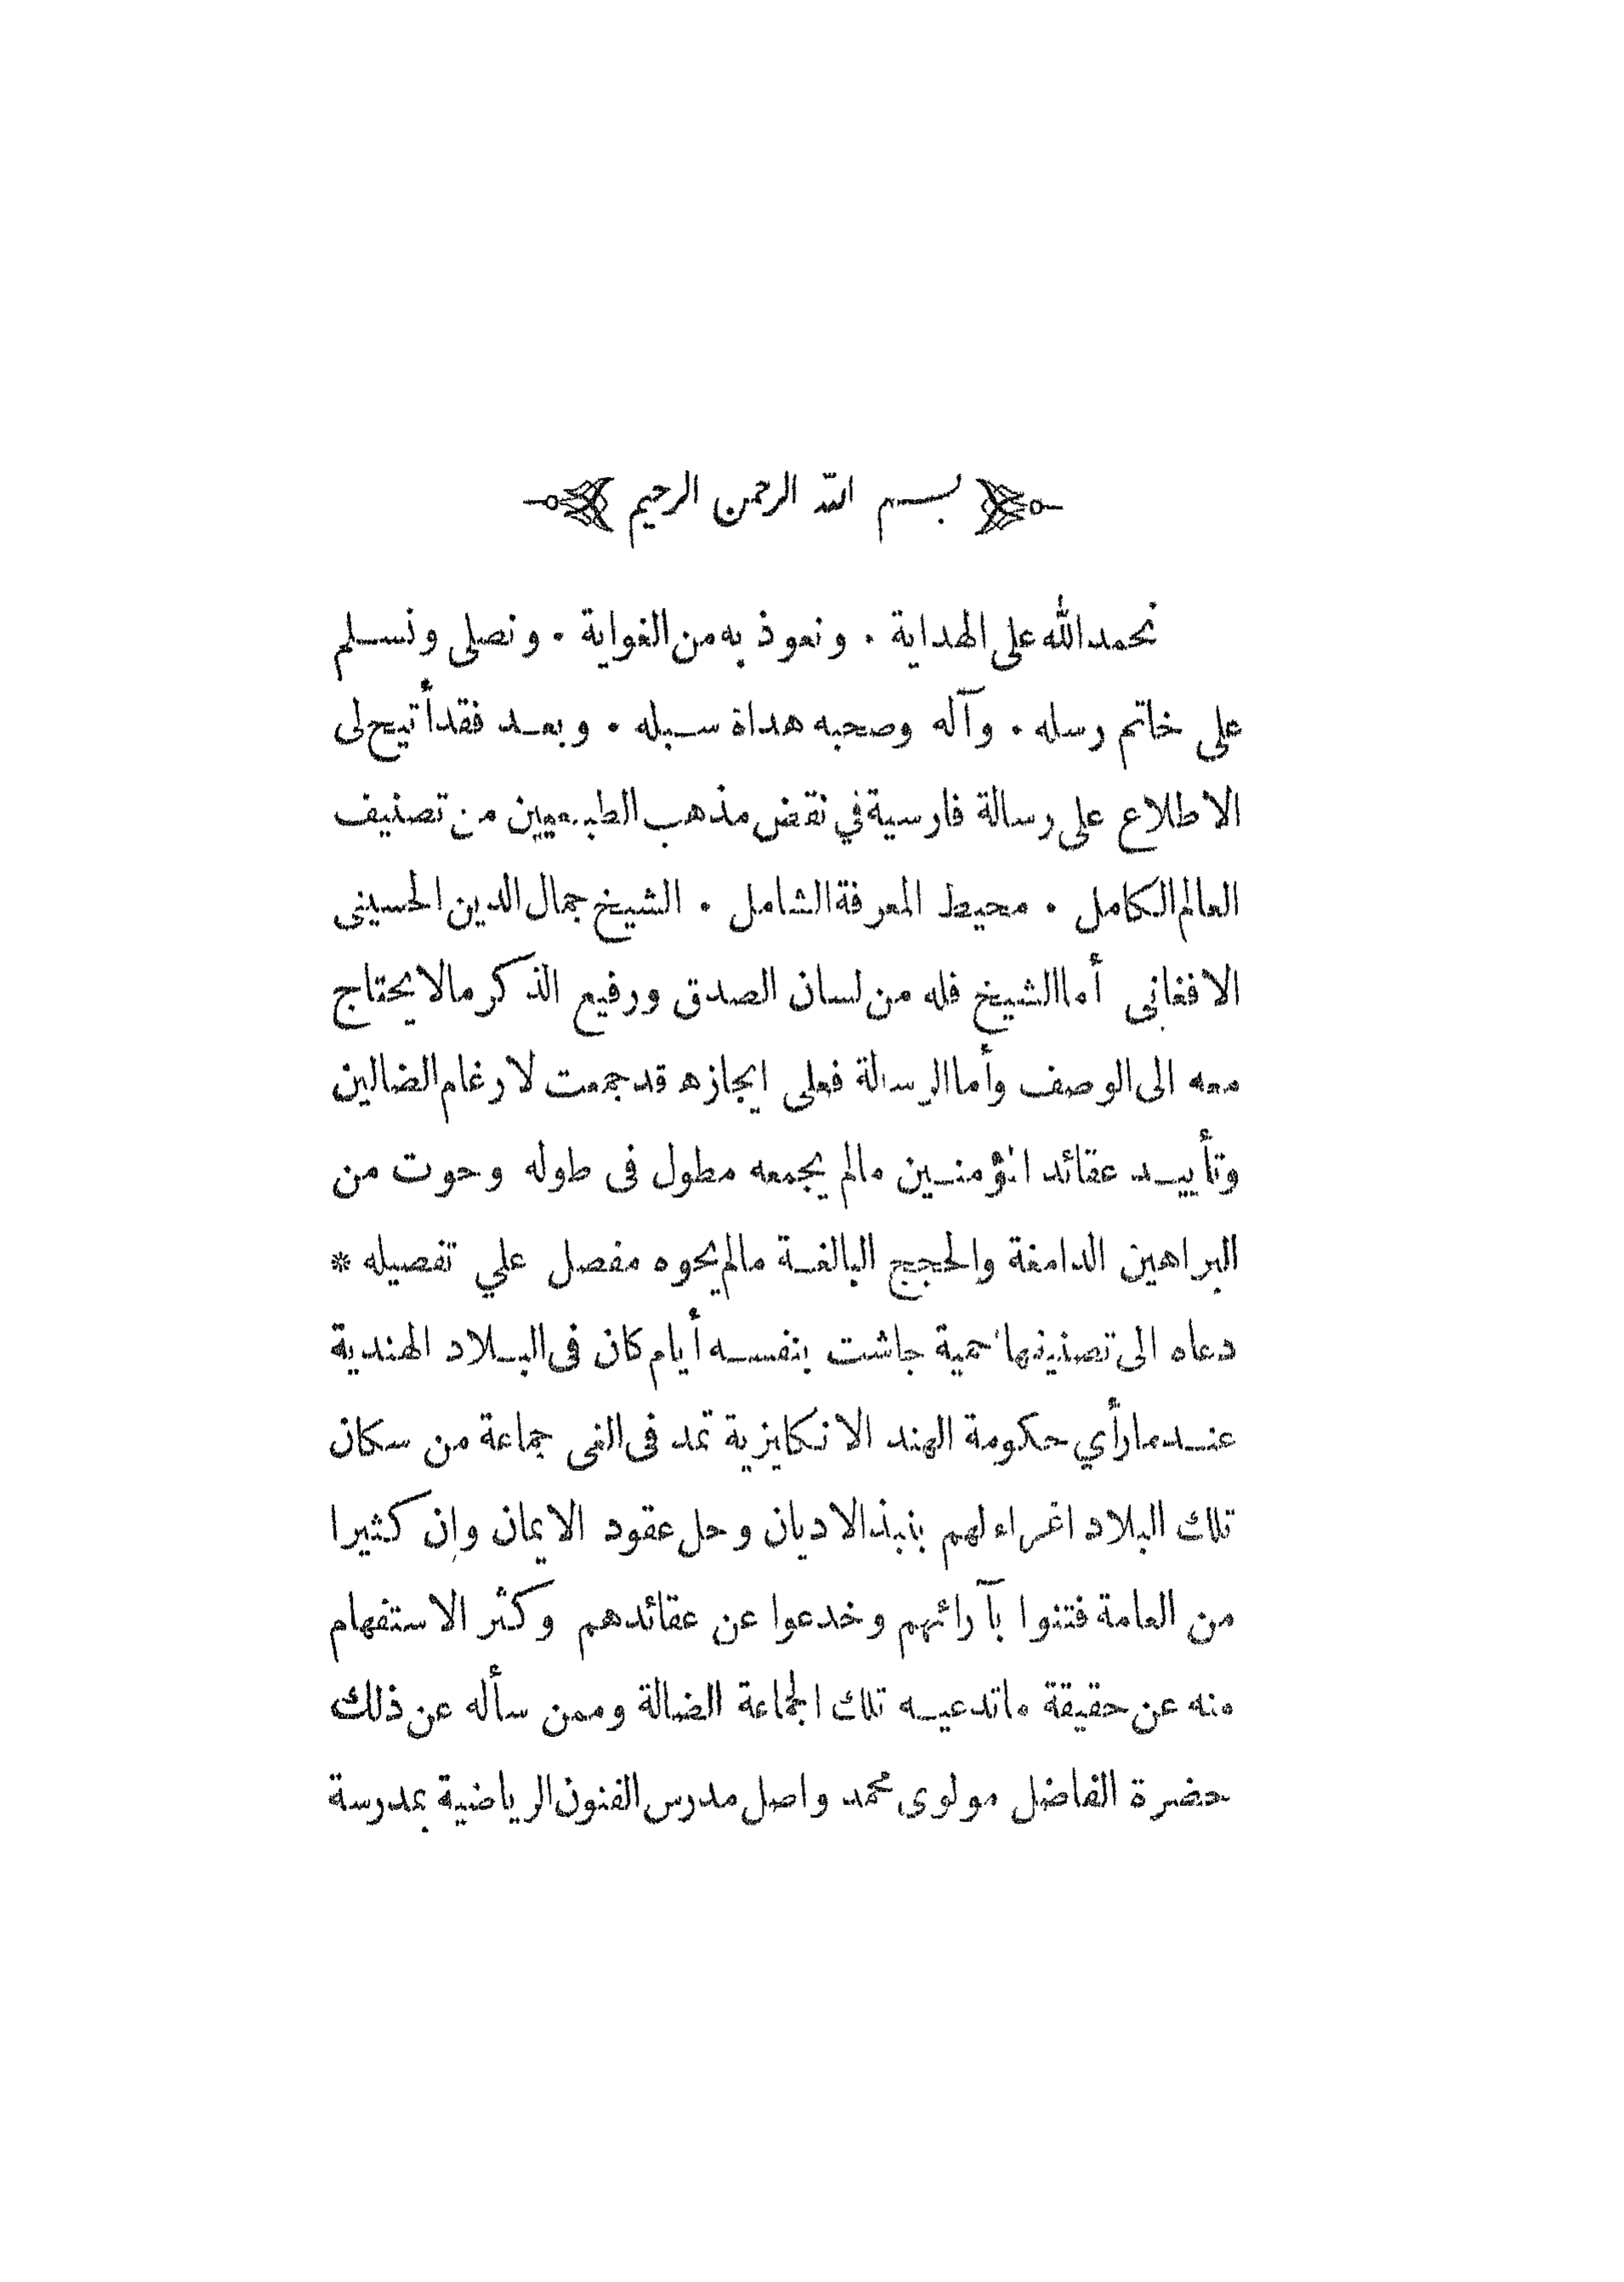 بسم الله الرحمن الرحيم
نحمد الله على الهداية . ونعوذ به من الغواية . ونصلى ونسلم
على خاتم رسله . وآله وصحبه هداة سبله . وبعد فقد أتيح لى
الاطلاع على رسالة فارسية في نقض مذهب الطبيعيين من تصنيف
العالم الكامل . محيط المعرفة الشامل . الشيخ جمال الدين الحسينى
الافغانى أما الشيخ فله من لسان الصدق ورفيع الذكر مالا يحتاج
معه الى الوصف وأما الرسالة فعلى ايجازها قد جمعت لارغام الضالين
وتأييد عقائد المؤمنين مالم يجمعه مطول فى طوله وحوت من
البراهين الدامغة والحجج البالغة مالم يحوه مفصل علي تفصيله *
دعاه الى تصنيفها حمية جاشت بنفسه أيام كان فى البلاد الهندية
عندما رأي حكومة الهند الانكليزية تمد فى الغى جماعة من سكان
تلك البلاد اغراء لهم بنبذ الاديان وحل عقود الايمان وإن كثيرا
من العامة فتنوا بآرائهم وخدعوا عن عقائدهم وكثر الاستفهام
منه عن حقيقة ماتدعيه تلك الجماعة الضالة وممن سأله عن ذلك
حضرة الفاضل مولوى محمد واصل مدرس الفنون الرياضية بمدرسة